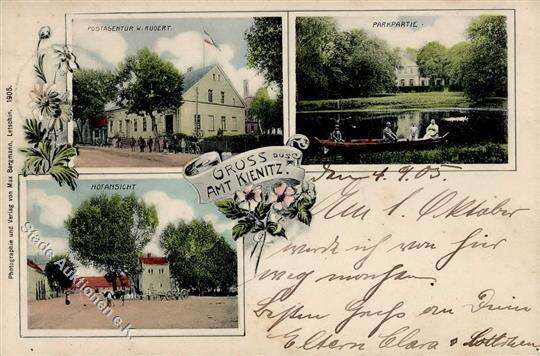 POSTAGENTUR W. RUDERT
PARKPARTIE
GRUSS aus
AMT KIENITZ.
HOFANSICHT
Photographie und Verlag von Max Bergmann, Letschin. 1905.
den 4.9.05
Am 1. Oktober
werde ich von hier
weg
Besten Gruß an Deine
Eltern Clara u.